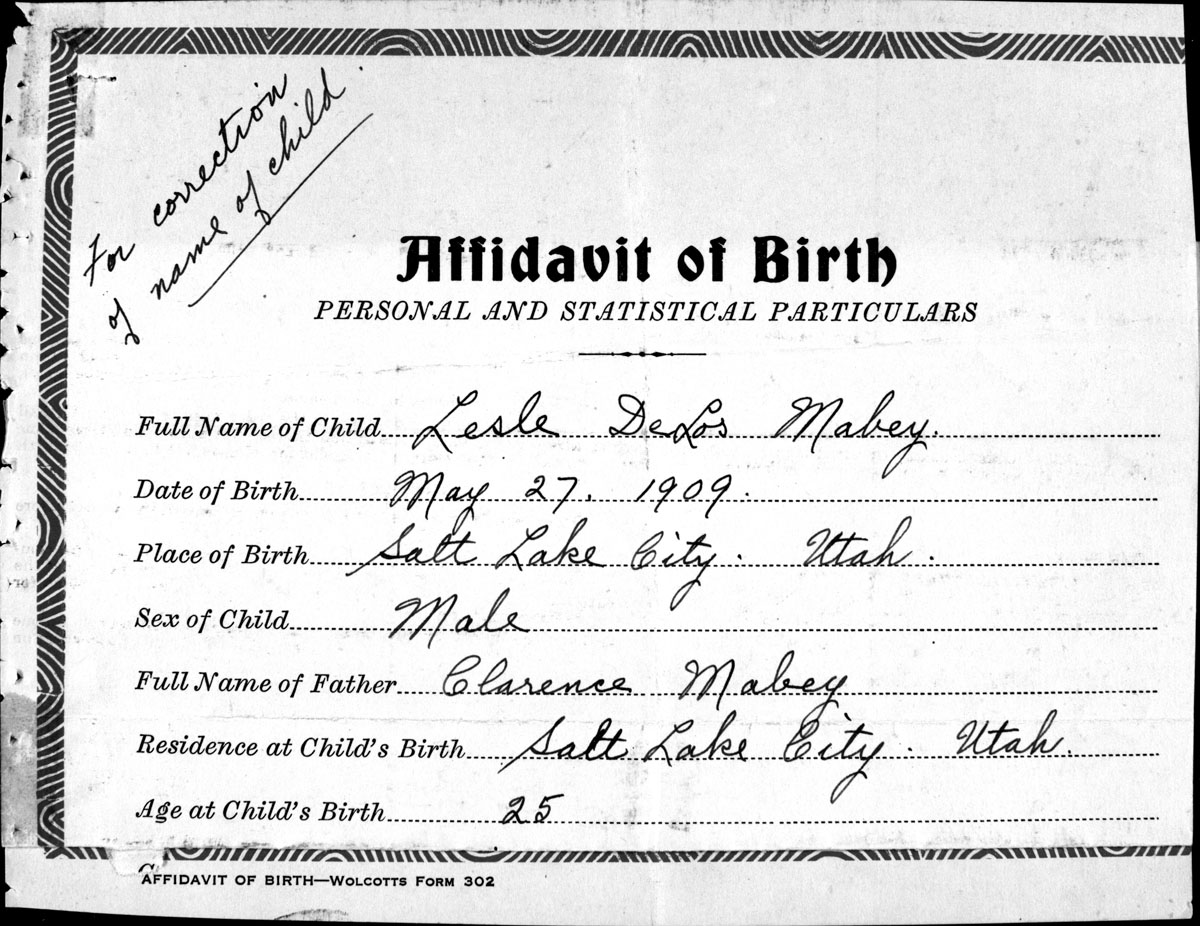 For correction
of name of child.
Affidavit of Birth
PERSONAL AND STATISTICAL PARTICULARS
Full Name of Child Lesle DeLos Mabey.
Date of Birth May 27, 1909.
Place of Birth Salt Lake City. Utah.
Sex of Child Male
Full Name of Father Clarence Mabey
Residence at Child's Birth Salt Lake City. Utah.
Age at Child's Birth 25
AFFIDAVIT OF BIRTH—WOLCOTTS FORM 302